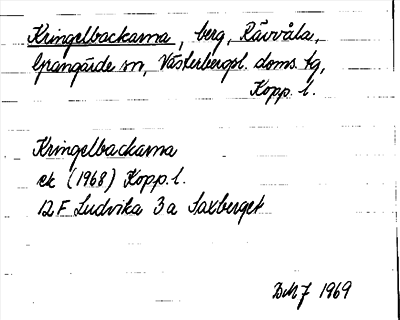 Kringelbackarna, berg, Rävvåla,
Grangärde sn, Västerbergsl. doms. tg,
Kopp. l.
Kringelbackarna
ek (1968) Kopp. l.
12 F Ludvika 3a Saxberget
1969